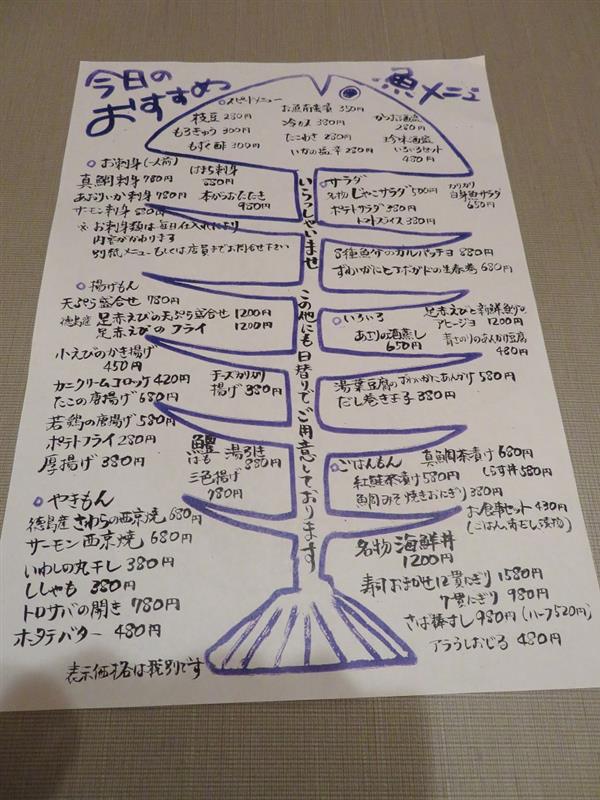 今日の
おすすめ
魚メニュ
スピードメニュー
枝豆 280円
もろきゅう 300円
もずく酢 300円
お魚南蛮漬 350円
冷カス 380円
たこわさ 280円
いかの塩辛 280円
かつお酒盗
280円
珍味酒盗
いろいろセット
480円
お刺身(一人前)
真鯛刺身 780円
あおりいか刺身 780円
サーモン刺身 680円
はまち刺身
680円
本かつおたたき
980円
※お刺身類は毎日仕入れにより
内容がかわります
別紙メニューもしくは店員までお問合せ下さい
サラダ
名物 じゃこサラダ 500円
ポテトサラダ 380円
トマトスライス 380円
カリカリ
白身魚サラダ
650円
3種魚介のカルパッチョ 880円
ずわいがにとアボガドの生春巻 680円
いらっしゃいませ この他にも日替りでご用意しております
揚げもん
天ぷら盛合せ 780円
徳島産 足赤えびの天ぷら盛合せ 1200円
足赤えびのフライ 1200円
小えびのかき揚げ
450円
カニクリームコロッケ 420円
たこの唐揚げ 680円
若鶏の唐揚げ 580円
ポテトフライ 280円
厚揚げ 380円
チーズカリカリ
揚げ 380円
鱧 はも 湯引き
880円
三色揚げ
780円
いろいろ
あさりの酒蒸し
650円
足赤えびと新鮮魚介の
アヒージョ 1200円
青さのりのあんかけ豆腐
480円
湯葉豆腐のおぼろがにあんかけ 580円
だし巻き玉子 380円
ごはんもん
真鯛茶漬け 680円
紅鮭茶漬け 580円
しらす丼 580円
魚周みそ焼きおにぎり 380円
お食事セット 430円
(ごはん、赤だし、漬物)
名物 海鮮丼
1200円
寿司おまかせ12貫にぎり 1580円
7貫にぎり 980円
さば棒すし 980円(ハーフ520円)
アラうしおじる 480円
やきもん
徳島産 さわらの西京焼 680円
サーモン西京焼 680円
いわしの丸干し 380円
ししゃも 380円
トロサバの開き 780円
ホタテバター 480円
表示価格は税別です